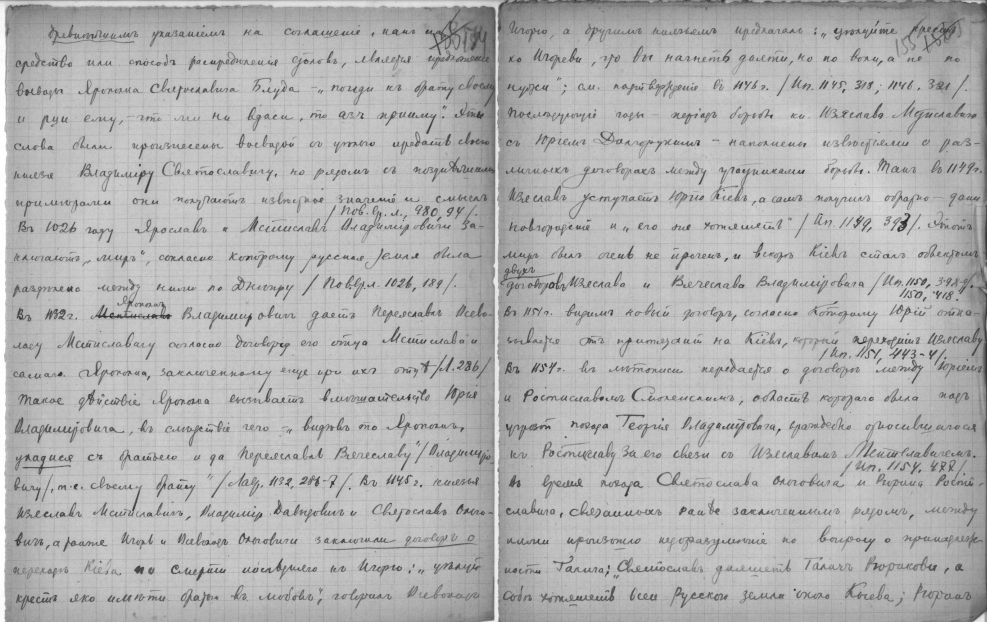 древнѣйшимъ указаніемъ на соглашеніе, какъ на
средство или способъ распредѣленія столовъ, является предложеніе
воеводы Ярополка Святославича Блуда – „поиди къ брату своему
и рци ему, – что ми ни вдаси, то азъ прииму“. Эти
слова были произнесены воеводой съ цѣлью предать своего
князя Владиміру Святославичу, но рядомъ съ позднѣйшими
примѣрами они получаютъ извѣстное значеніе и смыслъ
/Пов. вр. л., 980, 94/.
Въ 1026 году Ярославъ и Мстиславъ Владиміровичи за-
ключаютъ „миръ“, согласно которому русская земля была
раздѣлена между ними по Днѣпру /Пов.вр.л. 1026, 189/.
Ярополкъ
Въ 1132 г. Владимировичъ даетъ Переяславль Всево-
лоду Мстиславичу согласно договору его отца Мстислава и
самаго Ярополка, заключенному еще при ихъ отцѣ /Л. 286/
Такое дѣйствіе Ярополка вызываетъ вмѣшательство Юрія
Владиміровича, въ слѣдствіе чего – „видѣвъ то Ярополкъ,
уладися съ братьею и да Переяславль Вячеславу“ /Владиміро-
вичу/, т.е. своему брату“ /Лавр. 1132, 286-7/. Въ 1145 г. князья
Изяславъ Мстиславичъ, Владиміръ Давыдовичъ и Святославъ Ольго-
вичъ, а также Игорь и Всеволодъ Ольговичи заключили договоръ о
переходѣ Кіева по смерти послѣдняго къ Игорю: „цѣлую
крестъ яко имѣти братью въ любовь“, говорилъ Всеволодъ
155
Игорю, а другимъ князьямъ предлагалъ: „цѣлуйте крестъ
ко Игореви, что вы начнеть даяти, но по воли, а не по
нужи“; см. подтвержденіе въ 1146 г. /Ип. 1145, 318; 1146, 321/.
Послѣдующіе годы – періодъ борьбы кн. Изяслава Мстиславича
съ Юріемъ Долгорукимъ – наполнены извѣстіями о раз-
личныхъ договорахъ между участниками борьбы. Такъ въ 1149 г.
Изяславъ уступаетъ Юрію Кіевъ, а самъ получилъ обратно – дани
новгородскіе и „его они хотяшеть“ /Ип. 1149, 393/. Этотъ
миръ былъ очень не проченъ, и вскорѣ Кіевъ сталъ объектомъ
двухъ
договоровъ Изяслава и Вячеслава Владиміровича /Ип. 1150, 398
1150, 418.
Въ 1151 г. видимъ новый договоръ, согласно которому Юрій отка-
зывается отъ притязаній на Кіевъ, который переходитъ Изяславу
/Ип. 1151, 443-4/.
Въ 1154 г. въ лѣтописи передается о договорѣ между Юріемъ
и Ростиславомъ Смоленскимъ, область котораго была подъ
угрозой похода Георгія Владиміровича, враждебно относившагося
къ Ростиславу за его связи съ Изяславомъ Мстиславичемъ.
/Ип. 1154, 477/.
Во время похода Святослава Ольговича и Рюрика Рости-
славича, связанныхъ ранѣе заключеннымъ рядомъ, между
ними произошло недоразумѣніе по вопросу о принадлеж-
ности Галича; „Святославъ даяшеть Галичъ Рюрикови, а
собѣ хотяшеть всей Русской земли около Кыева; Рюрикъ